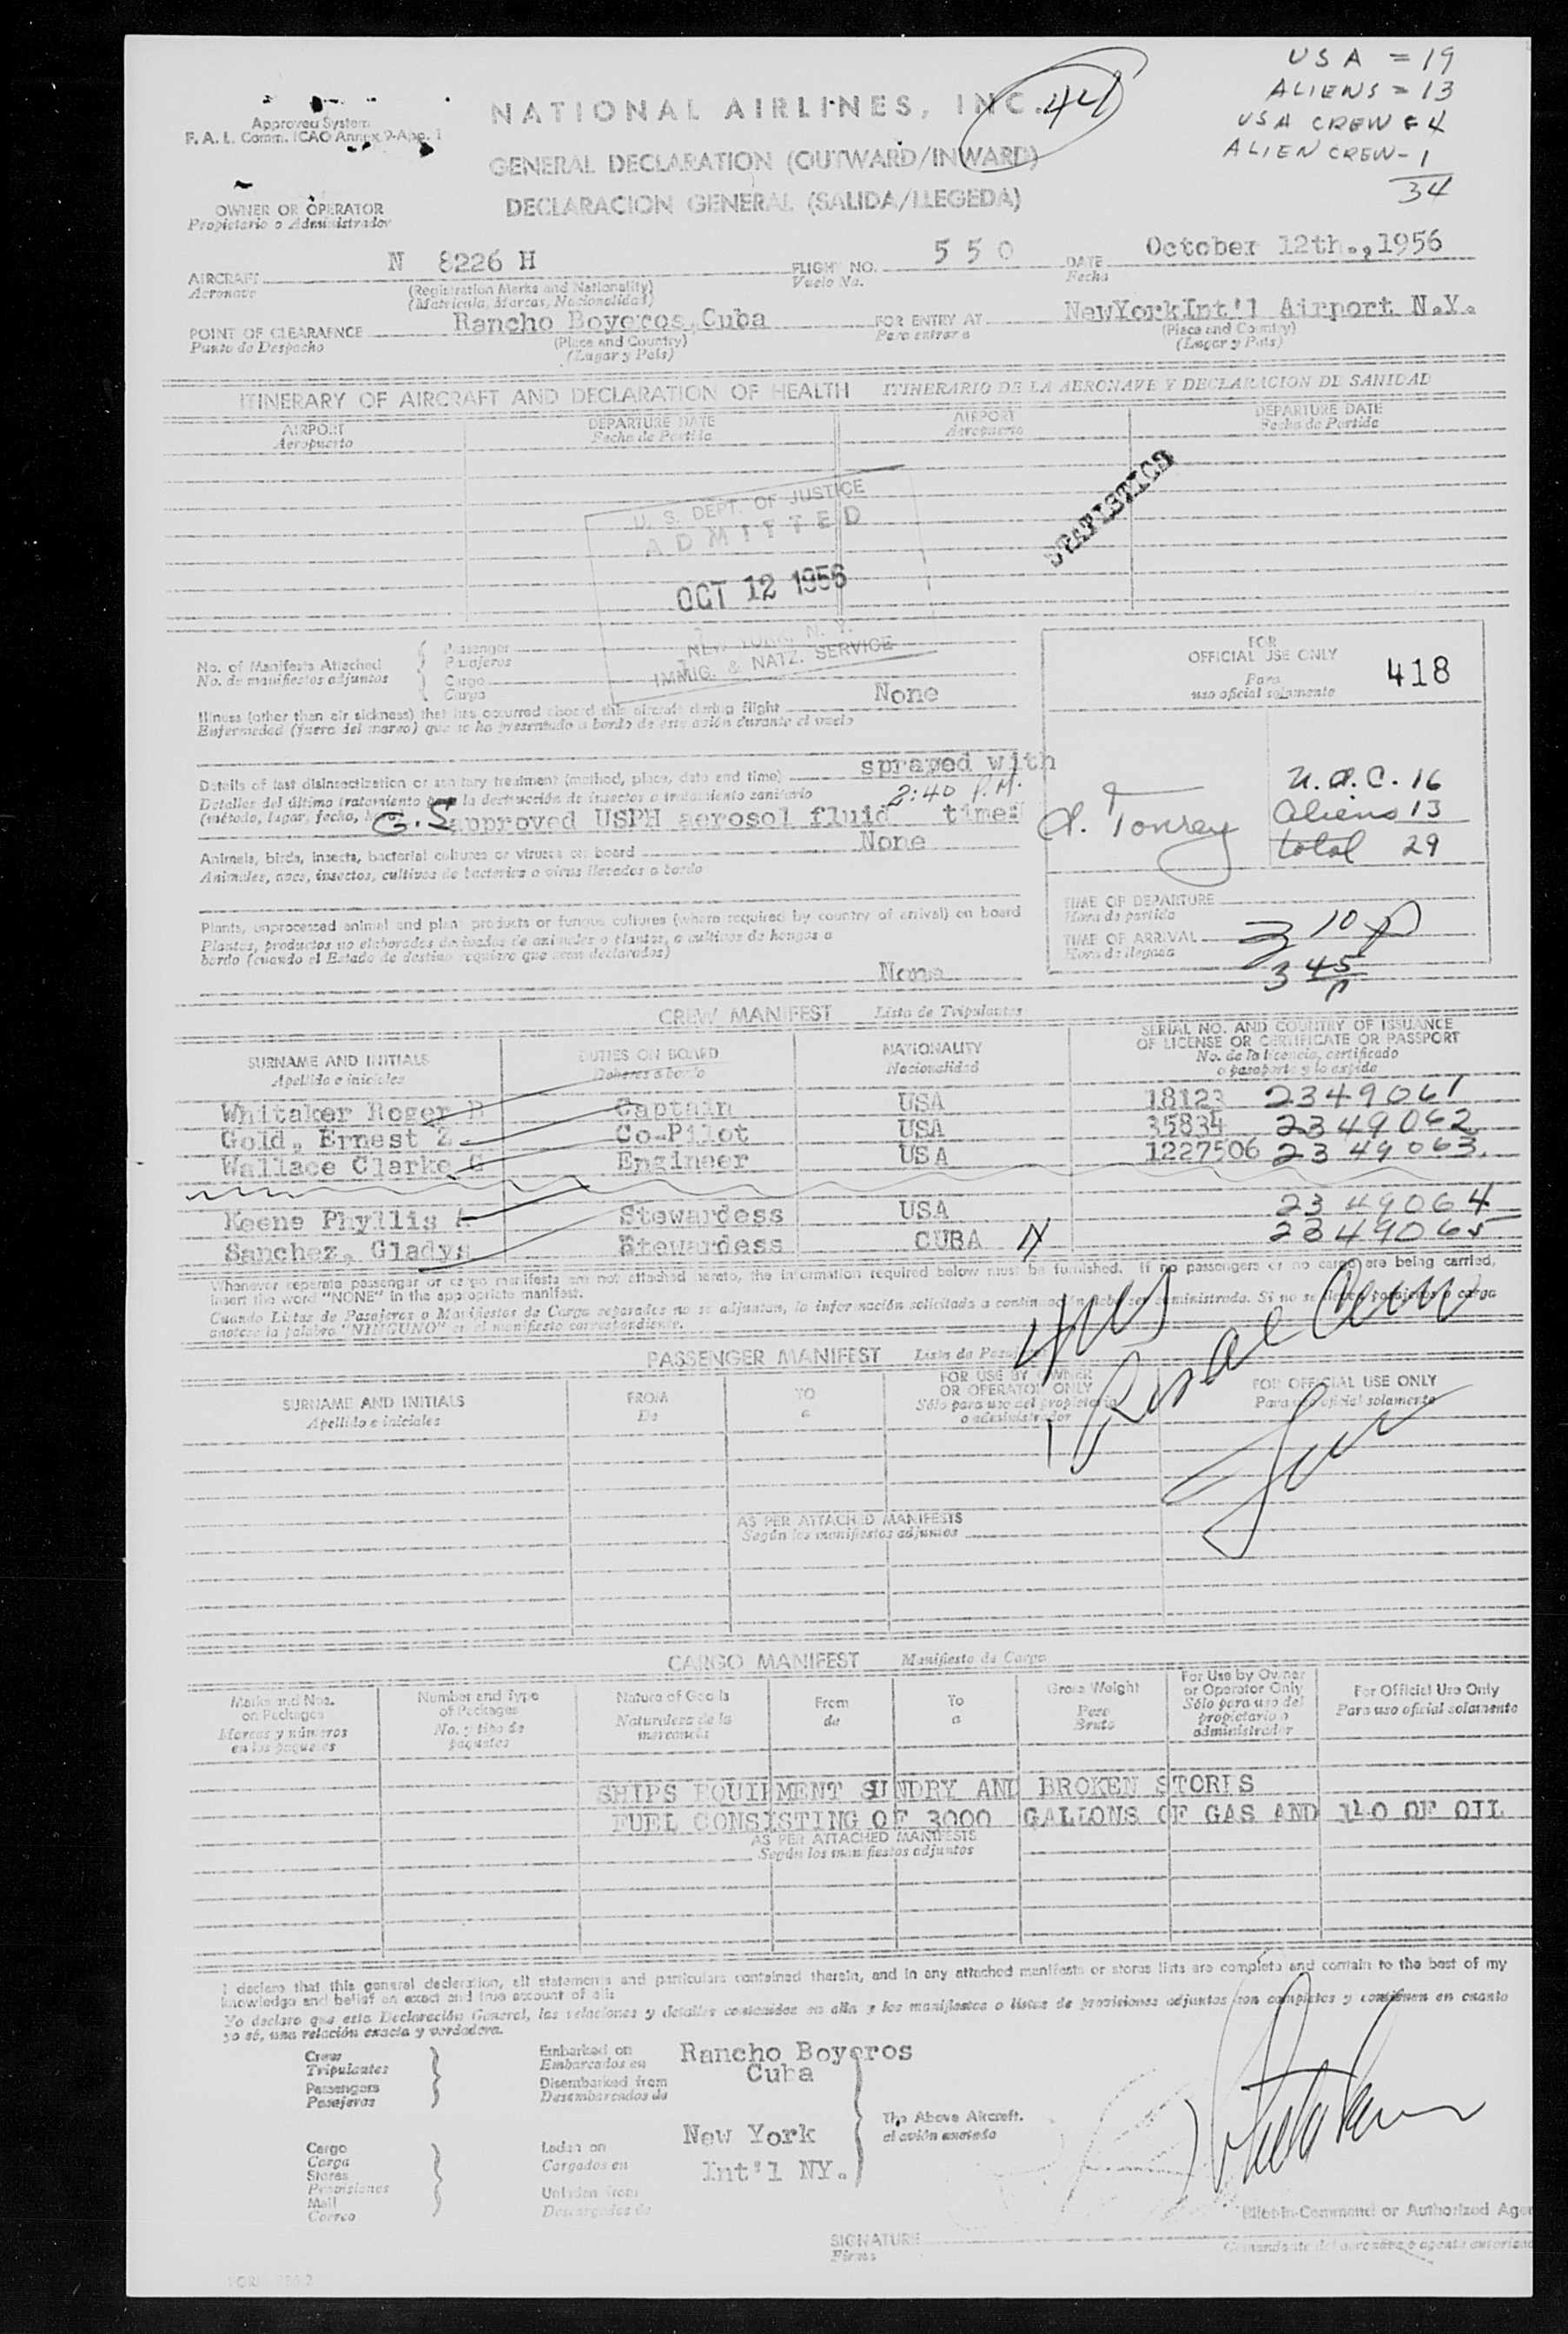 USA = 19
ALIENS = 13
USA CREW = 4
ALIEN CREW - 1
34
44
Approved System
F. A. L. Comm. ICAO Annex 9-App. 1
NATIONAL AIRLINES, INC.
GENERAL DECLARATION (OUTWARD/INWARD)
DECLARACION GENERAL (SALIDA/LLEGEDA)
OWNER OR OPERATOR
Propietario o Administrador
AIRCRAFT N 8226 H FLIGHT NO. 550 DATE October 12th.,1956
Aeronave (Registration Marks and Nationality) Vuelo No. Fecha
(Matricula, Marcas, Nacionalidad)
POINT OF CLEARAFNCE Rancho Boyeros,Cuba FOR ENTRY AT NewYorkInt'l Airport N.Y.
Punto de Despacho (Place and Country) Para entrar a (Place and Country)
(Lugar y Pais) (Lugar y Pais)
ITINERARY OF AIRCRAFT AND DECLARATION OF HEALTH ITINERARIO DE LA AERONAVE Y DECLARACION DE SANIDAD
AIRPORT DEPARTURE DATE AIRPORT DEPARTURE DATE
Aeropuerto Fecha de Partida Aeropuerto Fecha de Partida
STATISTICS
U. S. DEPT. OF JUSTICE
ADMITTED
OCT 12 1956
NEW YORK, N. Y.
IMMIG. & NATZ. SERVICE
No. of Manifests Attached
No. de manifiestos adjuntos
Passenger
Pasajeros
Cargo
Carga
FOR
OFFICIAL USE ONLY
Para
uso oficial solamente
418
Illness (other than air sickness) that has occurred aboard this aircraft during flight None
Enfermedad (fuera del mareo) que se ha presentado a bordo de este avión durante el vuelo
Details of last disinsectization or sanitary treatment (method, place, date and time) sprayed with
Detalles del último tratamiento para la destrucción de insectos o tratamiento sanitario 2:40 P.M.
(método, lugar, fecha, G.S. approved USPH aerosol fluid time:
U.S.C. 16
Aliens 13
total 29
Animals, birds, insects, bacterial cultures or viruses on board None
Animales, aves, insectos, cultivos de bacterias o virus llevados a bordo
Plants, unprocessed animal and plant products or fungus cultures (where required by country of arrival) on board
Plantas, productos no elaborados derivados de animales o plantas, o cultivos de hongos a
bordo (cuando el Estado de destino requiere que sean declarados)
None
TIME OF DEPARTURE
Hora de partida
TIME OF ARRIVAL 3 10 P
Hora de llegada
3 45 P
CREW MANIFEST Lista de Tripulantes
SURNAME AND INITIALS DUTIES ON BOARD NATIONALITY SERIAL NO. AND COUNTRY OF ISSUANCE
OF LICENSE OR CERTIFICATE OR PASSPORT
Apellido e iniciales Deberes a bordo Nacionalidad No. de la licencia, certificado
o pasaporte y lo expido
Whitaker Roger B Captain USA 18123 2349061
Gold, Ernest Z Co-Pilot USA 35834 2349062
Wallace Clarke C Engineer USA 1227506 2349063
Keene Phyllis A Stewardess USA 2349064
Sanchez, Gladys Stewardess CUBA 2349065
Whenever separate passenger or cargo manifests are not attached hereto, the information required below must be furnished. If no passengers or no cargo are being carried,
insert the word "NONE" in the appropriate manifest.
Cuando Listas de Pasajeros o Manifiestos de Carga separados no se adjuntan, la información solicitada a continuación debe ser suministrada. Si no se llevan pasajeros o carga
anotese la palabra "NINGUNO" en el manifiesto correspondiente.
PASSENGER MANIFEST Lista de Pasajeros
SURNAME AND INITIALS FROM TO FOR USE BY OWNER
OR OPERATOR ONLY FOR OFFICIAL USE ONLY
Apellido e iniciales De a Sólo para uso del propietario
o administrador Para uso oficial solamente
AS PER ATTACHED MANIFESTS
Según los manifiestos adjuntos
CARGO MANIFEST Manifiesto de Carga
Marks and Nos.
on Packages
Marcas y números
en los paquetes
Number and Type
of Packages
No. y tipo de
paquetes
Nature of Goods
Naturaleza de la
mercancia
From
de
To
a
Gross Weight
Peso
Bruto
For Use by Owner
or Operator Only
Sólo para uso del
propietario o
administrador
For Official Use Only
Para uso oficial solamente
SHIPS EQUIPMENT SUNDRY AND BROKEN STORES
FUEL CONSISTING OF 3000 GALLONS OF GAS AND 140 OF OIL
AS PER ATTACHED MANIFESTS
Según los manifiestos adjuntos
I declare that this general declaration, all statements and particulars contained therein, and in any attached manifests or stores lists are complete and contain to the best of my
knowledge and belief an exact and true account of all:
Yo declaro que esta Declaración General, las relaciones y detalles contenidos en ella y los manifiestos o listas de provisiones adjuntas son completos y contienen en cuanto
yo sé, una relación exacta y verdadera.
Crew
Tripulantes
Passengers
Pasajeros
Embarked on
Embarcados en
Disembarked from
Desembarcados de
Rancho Boyeros
Cuba
The Above Aircraft.
el avión anotado
Cargo
Carga
Stores
Provisiones
Mail
Correo
Laden on
Cargados en
Unladen from
Descargados de
New York
Int'l NY.
Pilot-in-Command or Authorized Agen
SIGNATURE
Firma
Comandante del aeronave o agente autorizado